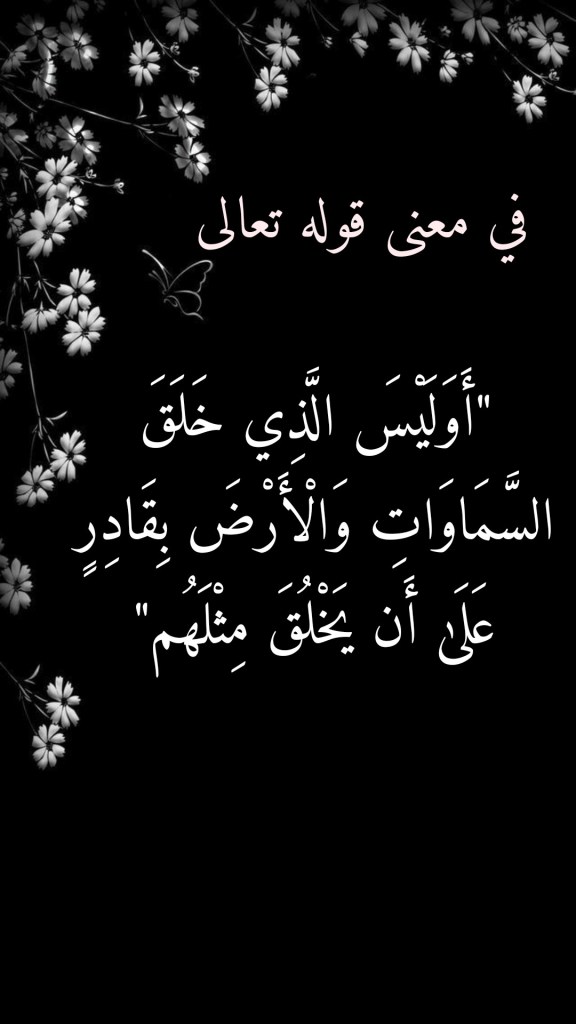 في معنى قوله تعالى
"أَوَلَيْسَ الَّذِي خَلَقَ
السَّمَاوَاتِ وَالْأَرْضَ بِقَادِرٍ
عَلَىٰ أَن يَخْلُقَ مِثْلَهُم"